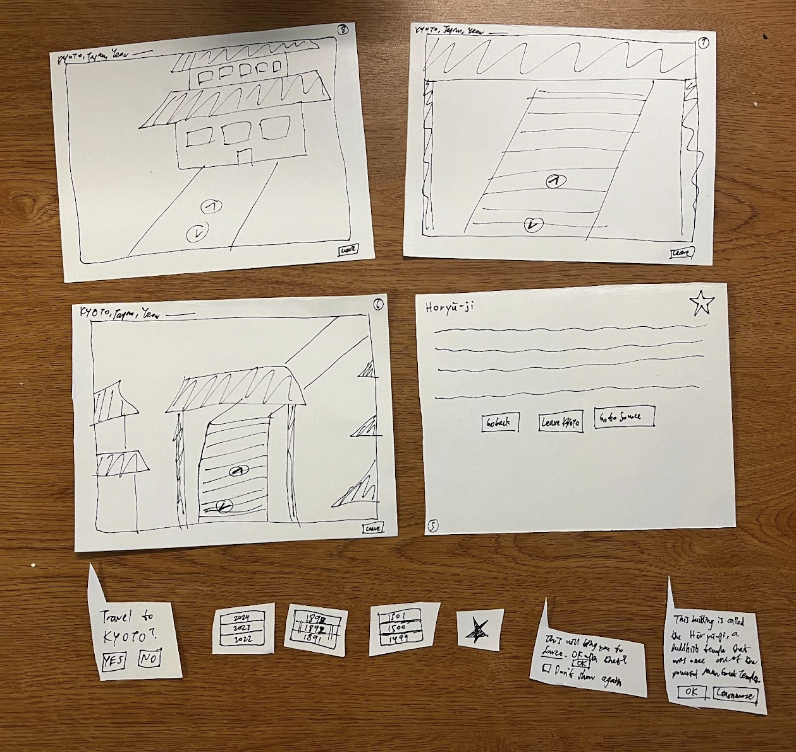 KYOTO, Japan, Year
8
LEAVE
KYOTO, Japan, Year
7
LEAVE
KYOTO, Japan, Year
6
LEAVE
Horyū-ji
Go back
Leave KYOTO
Go to Source
5
Travel to
KYOTO?
YES
NO
2024
2023
2022
1892
1891
1500
1499
This will bring you to
OK after that?
OK
Don't show again
This building is called
the Horyu-ji, a
Buddhist temple that
was once one of the
powerful Temples
OK
Learn more